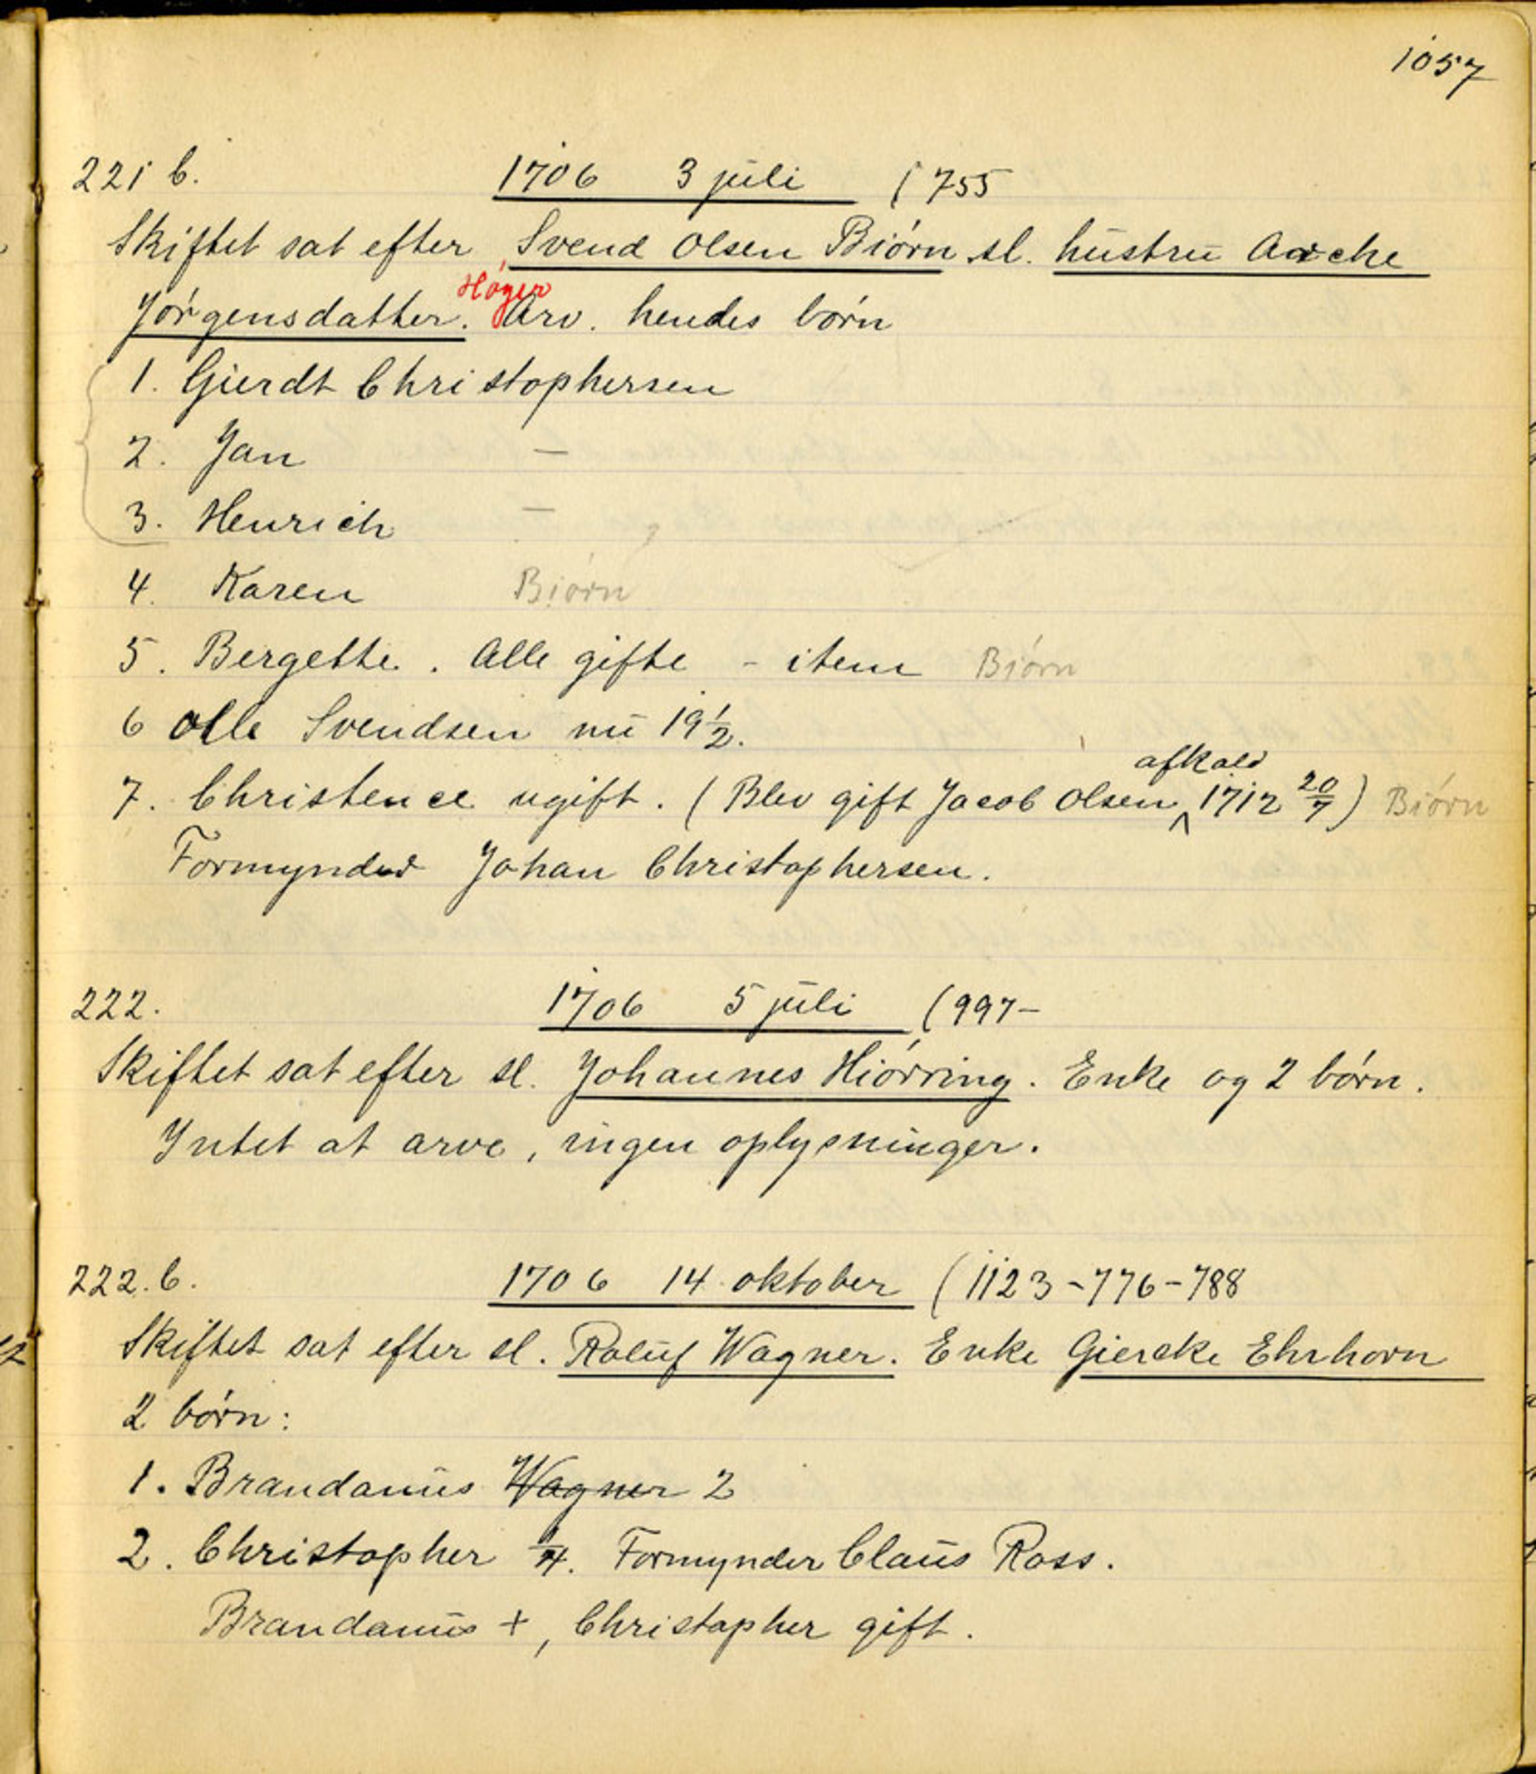 1057
221 b. 1706 3 juli (755
Skiftet sat efter Svend Olsen Biørn sl. hustru Anche
Høyer
Jörgensdatter. Arv. hendes börn
1. Gierdt Christophersen
2. Jan —
3. Henrich —
4. Karen Biørn
5. Bergette. Alle gifte - item Biørn
6 Olle Svendsen nu 19 1/2.
afkald
7. Christence ugift. (Blev gift Jacob Olsen ^ 1712 20/7) Biørn
Formynder Johan Christophersen.
222. 1706 5 juli (997-
Skiftet sat efter sl. Johannes Hiörring. Enke og 2 börn.
Intet at arve, ingen oplysninger.
222.b. 1706 14 oktober (1123-776-788
Skiftet sat efter sl. Roluf Wagner. Enke Giercke Ehrhorn
2 börn:
1. Brandanus Wagner 2
2. Christopher 1/4. Formynder Claus Ross.
Brandanus +, Christopher gift.